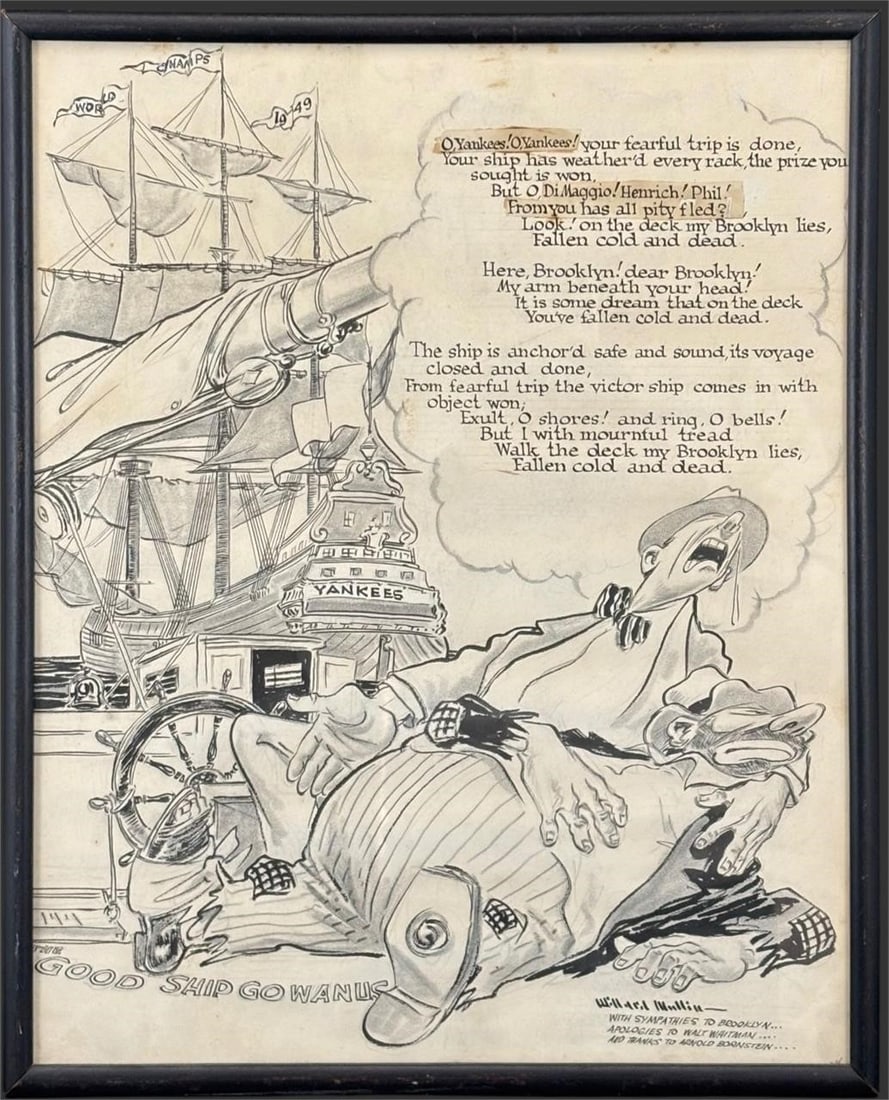 WORLD CHAMPS 1949
O, Yankees! O, Yankees! your fearful trip is done,
Your ship has weather'd every rack, the prize you
sought is won.
But O, DiMaggio! Henrich! Phil!
From you has all pity fled?
Look! on the deck my Brooklyn lies,
Fallen cold and dead.
Here, Brooklyn! dear Brooklyn!
My arm beneath your head!
It is some dream that on the deck
You've fallen cold and dead.
The ship is anchor'd safe and sound, its voyage
closed and done,
From fearful trip the victor ship comes in with
object won;
Exult, O shores! and ring, O bells!
But I with mournful tread
Walk the deck my Brooklyn lies,
Fallen cold and dead.
YANKEES
GOOD SHIP GOWANUS
Willard Mullin
WITH SYMPATHIES TO BROOKLYN...
APOLOGIES TO WALT WHITMAN....
AND THANKS TO ARNOLD BORNSTEIN....